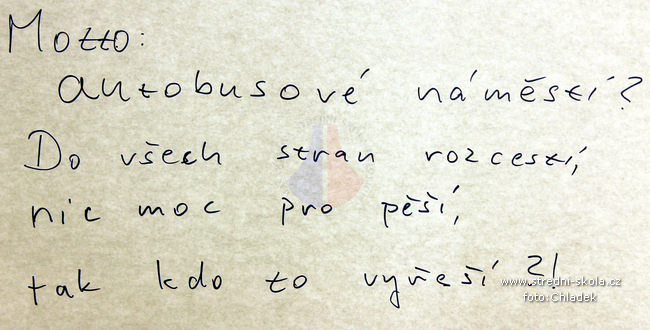 Motto:
autobusové náměstí?
Do všech stran rozcestí,
nic moc pro pěší,
tak kdo to vyřeší?!
www.stredni-skola.cz
foto: Chládek